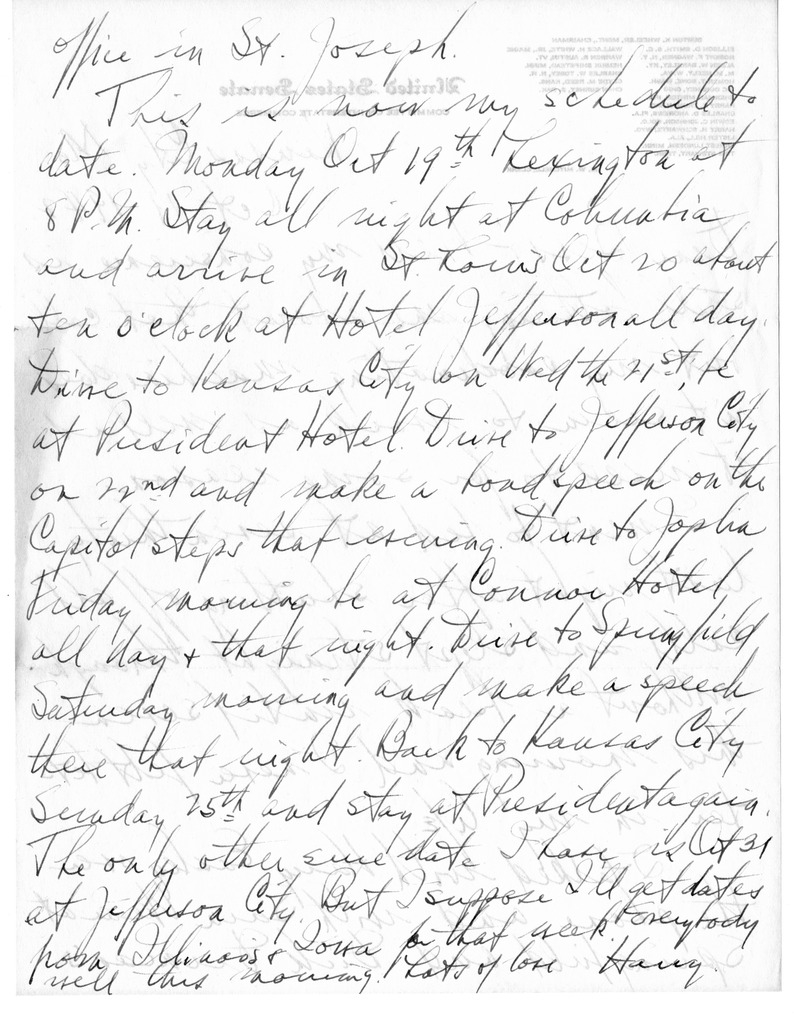 office in St. Joseph.
This is now my schedule to
date. Monday Oct 19th Lexington at
8 P.M. Stay all night at Columbia
and arrive in St Louis Oct 20 about
ten o'clock at Hotel Jefferson all day.
Drive to Kansas City on Wed the 21st, be
at President Hotel. Drive to Jefferson City
on 22nd and make a bond speech on the
Capitol steps that evening. Drive to Joplin
Friday morning be at Connor Hotel
all day + that night. Drive to Springfield
Saturday morning and make a speech
there that night. Back to Kansas City
Sunday 25th and stay at President again.
The only other sure date I have is Oct 31
at Jefferson City. But I suppose I'll get dates
from Illinois & Iowa for that week. Everybody
well this morning. Lots of love Harry.